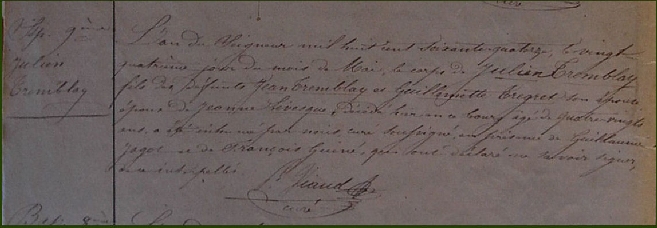 Sép. 9ème
Julien
Tremblay
L'an du Seigneur mil huit cent soixante quatorze, le vingt
quatrième jour du mois de Mai, le corps de Julien Tremblay
fils des défunts Jean Tremblay et Guillemette Trigret son épouse
époux de Jeanne Lévesque, décédé hier en ce bourg âgé de quatre vingts
ans, a été inhumé par nous curé soussigné en présence de Guillaume
Jagot et de François Guiné, qui ont déclaré ne savoir signer,
de ce interpellés.
Viaud
curé
Bap.